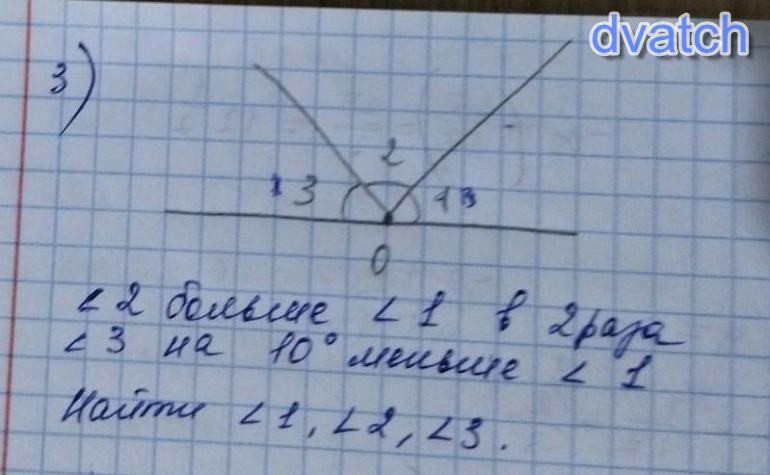 dvatch
3)
2
3 1
0
∠2 больше ∠1 в 2 раза
∠3 на 10° меньше ∠1
Найти ∠1, ∠2, ∠3.